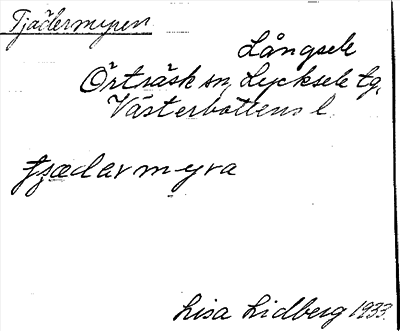 Tjädermyren
Långsele
Örträsk sn, Lycksele tg,
Västerbottens l.
tjædarmyra
Lisa Lidberg 1933.